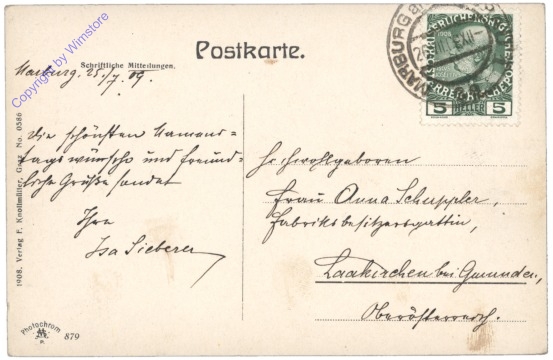 Postkarte.
Schriftliche Mitteilungen.
Marburg, 25./7. 09.
Die schönsten Namens=
tagswünsche und freund=
liche Grüße sendet
Ihre
Isa Sieberer
Hochwohlgeboren
Frau Anna Schuppler,
Fabriksbesitzersgattin,
Laakirchen bei Gmunden,
Oberösterreich.
MARBURG
5 HELLER 5
1908. Verlag F. Knollmüller, Graz No. 0586
Photochrom
879
Copyright by Wimstore